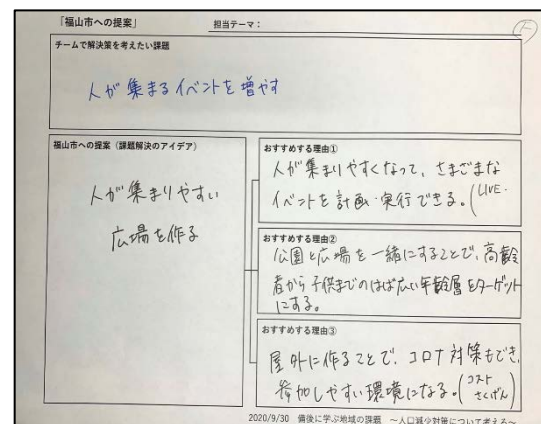 「福山市への提案」 担当テーマ：
F
チームで解決策を考えたい課題
人が集まるイベントを増やす
福山市への提案（課題解決のアイデア）
人が集まりやすい
広場を作る
おすすめする理由①
人が集まりやすくなって、さまざまな
イベントを計画・実行できる。(LIVE・
おすすめする理由②
公園と広場を一緒にすることで、高齢
者から子供までのはば広い年齢層をターゲット
にする。
おすすめする理由③
屋外に作ることで、コロナ対策もでき、
参加しやすい環境になる。(コスト
さくげん)
2020/9/30 備後に学ぶ地域の課題 ～人口減少対策について考える～